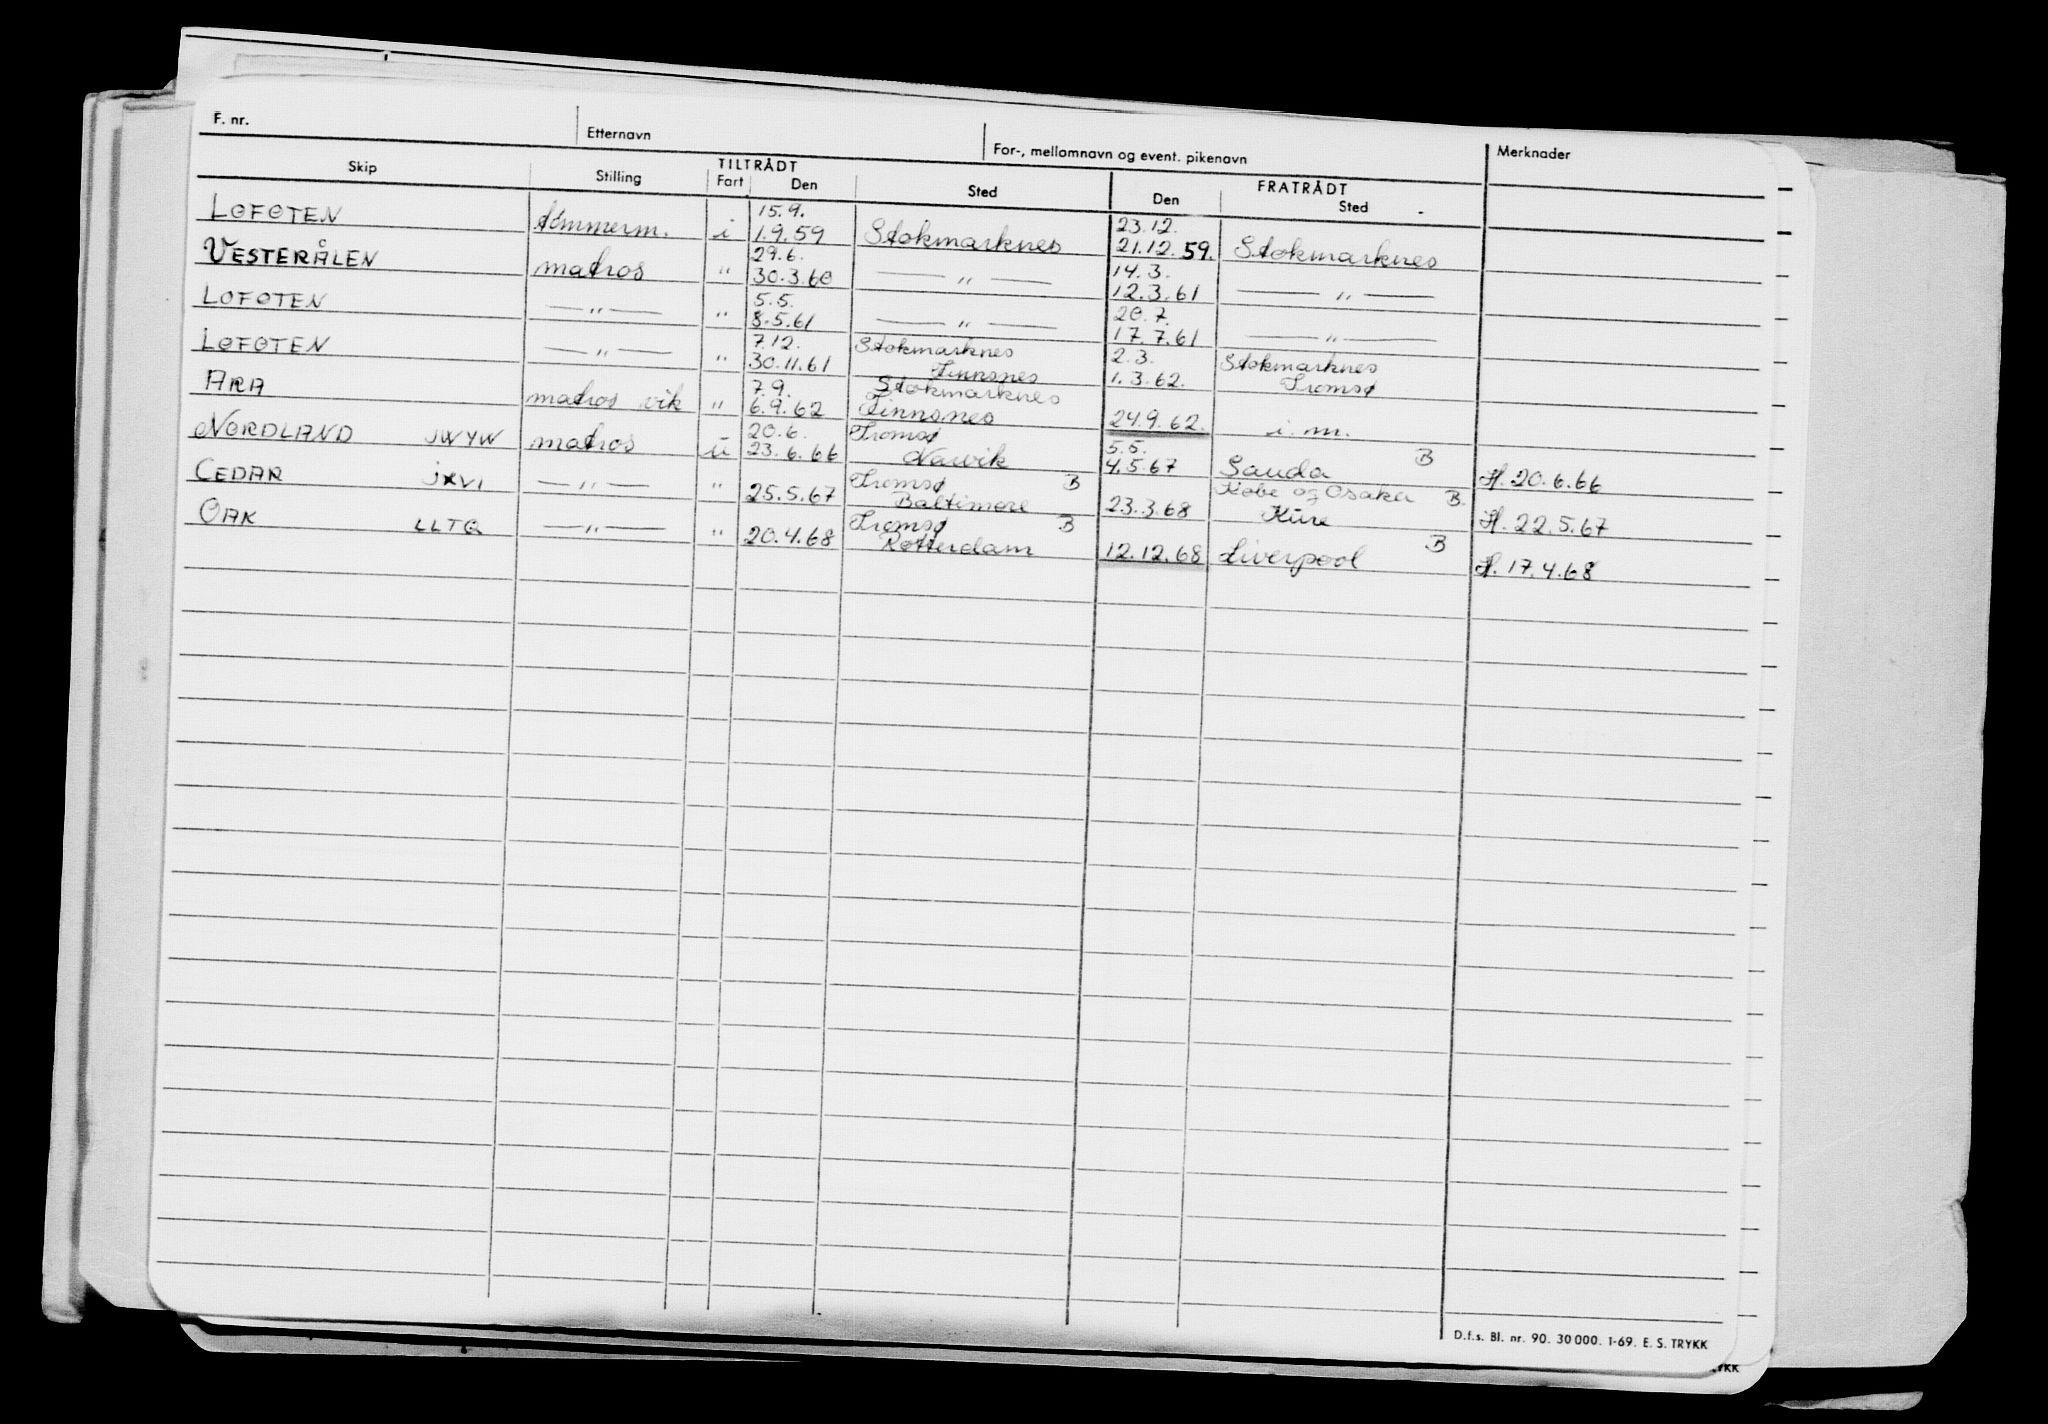 F. nr. Etternavn For-, mellomnavn og event. pikenavn Merknader
TILTRÅDT FRATRÅDT
Skip Stilling Fart Den Sted Den Sted
15.9. 23.12.
LOFOTEN tömmerm. i 1.9.59 Stokmarknes 21.12.59. Stokmarknes
29.6. 14.3.
VESTERÅLEN matros " 30.3.60 — " — 12.3.61 — " —
5.5. 20.7.
LOFOTEN — " — " 8.5.61 — " — 17.7.61 — " —
7.12. Stokmarknes 2.3. Stokmarknes
LOFOTEN — " — " 30.11.61 Finnsnes 1.3.62. Tromsø
7.9. Stokmarknes
ARA matros vik " 6.9.62 Finnsnes 24.9.62. i.m.
20.6. Tromsø 5.5. B
NORDLAND JWYW matros ü 23.6.66 Narvik 4.5.67 Sauda H. 20.6.66
Tromsø B Kobe og Osaka B.
CEDAR JXVI — " — " 25.5.67 Baltimore 23.3.68 Kure H. 22.5.67
Tromsø B B
OAK LLTQ — " — " 20.4.68 Rotterdam 12.12.68 Liverpool H. 17.4.68
D.f.s. Bl. nr. 90. 30 000. 1-69. E. S. TRYKK
TRYKK